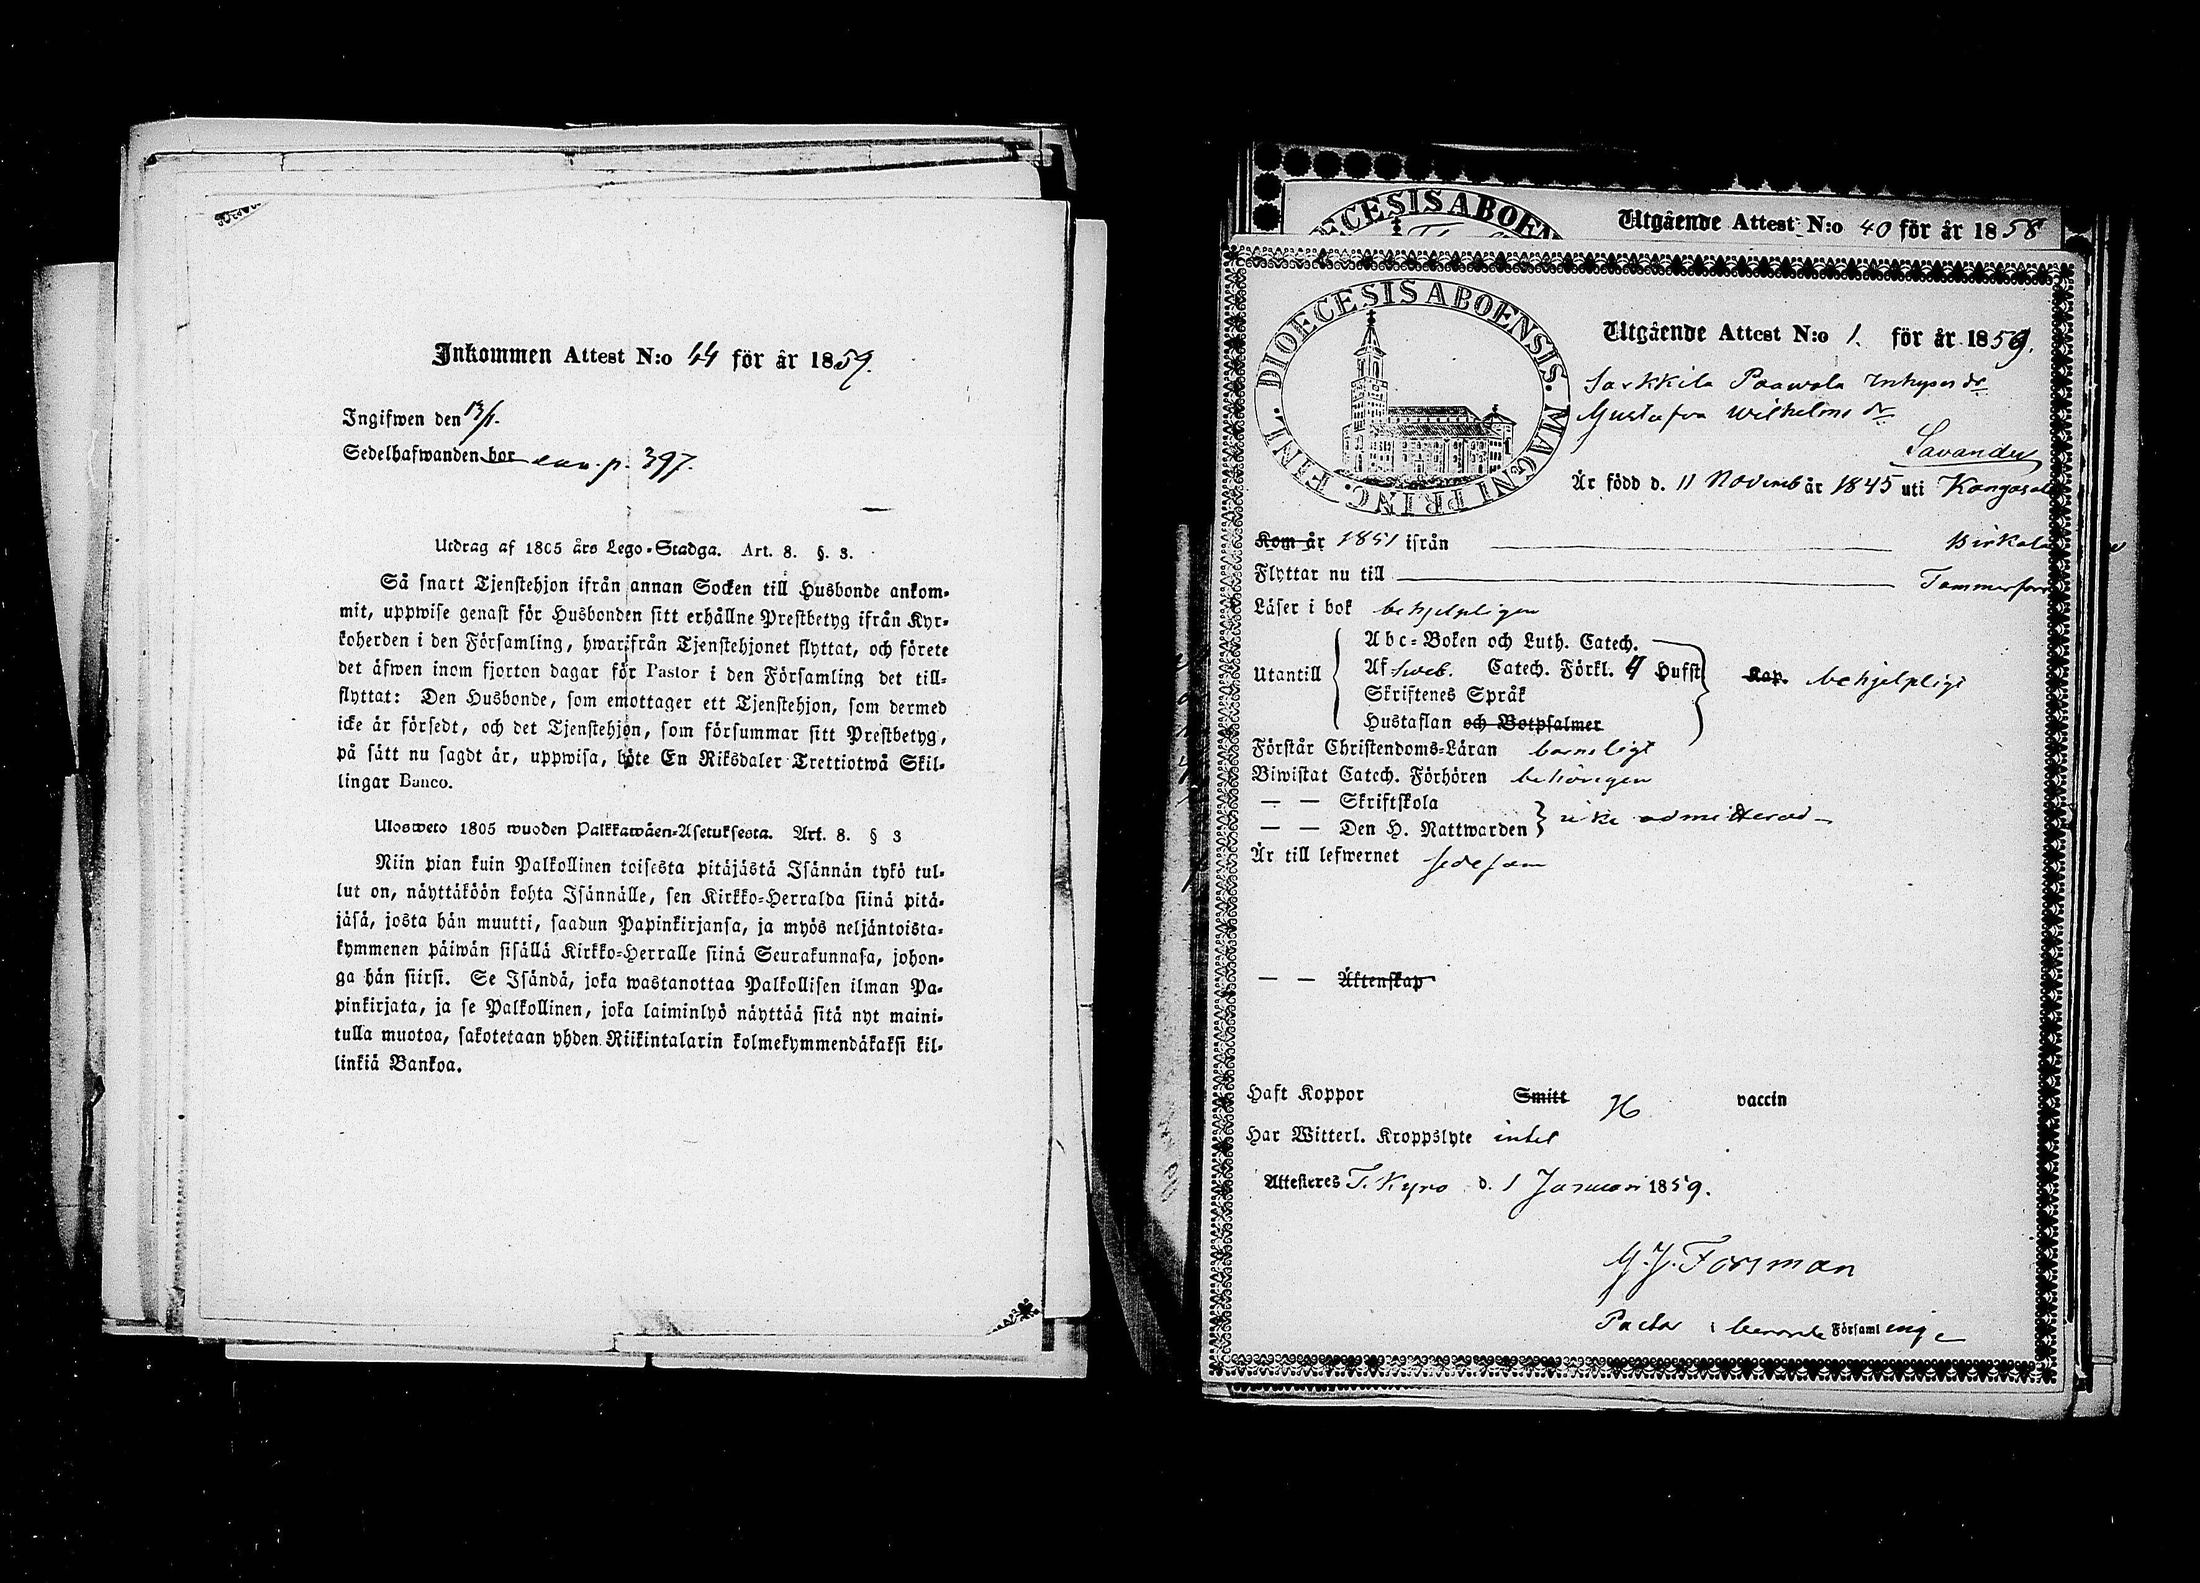 Inkommen Attest N:o 44 för år 1859.
Ingifwen den 13/1.
Sedelhafwanden bor p. 397.
Utdrag af 1805 års Lego-Stadga. Art. 8. §. 3.
Så snart Tjenstehjon ifrån annan Socken till Husbonde ankom-
mit, uppwise genast för Husbonden sitt erhållne Prestbetyg ifrån Kyr-
koherden i den Församling, hwarifrån Tjenstehjonet flyttat, och förete
det äfwen inom fjorton dagar för Pastor i den Församling det till-
flyttat: Den Husbonde, som emottager ett Tjenstehjon, som dermed
icke är försedt, och det Tjenstehjon, som försummar sitt Prestbetyg,
på sätt nu sagdt är, uppwisa, böte En Riksdaler Trettiotwå Skil-
lingar Banco.
Ulosweto 1805 wuoden Palkkawäen-Asetuksesta. Art. 8. § 3
Niin pian kuin Palkollinen toisesta pitäjästä Isännän tykö tul-
lut on, näyttäköön kohta Isännälle, sen Kirkko-Herralda siinä pitä-
jäsä, josta hän muutti, saadun Papinkirjansa, ja myös neljäntoista-
kymmenen päiwän sisällä Kirkko-Herralle siinä Seurakunnasa, johon-
ga hän siirsi. Se Isändä, joka wastanottaa Palkollisen ilman Pa-
pinkirjata, ja se Palkollinen, joka laiminlyö näyttää sitä nyt maini-
tulla muotoa, sakotetaan yhden Riikintalarin kolmekymmendäkaksi kil-
linkiä Bankoa.
DIOECESIS ABOEN
Utgående Attest N:o 40 för år 1858
DIOECESIS ABOENSIS. MAGNI PRINC. FINL.
Utgående Attest N:o 1. för år 1859.
Sarkkila Paawola Inhyses dr
Gustafva Wilhelms dr
Savander
Är född d. 11 Novemb år 1845 uti Kangasala
Kom år 1851 ifrån Birkala
Flyttar nu till Tammerfors
Läser i bok behjelpligen
Abc-Boken och Luth. Catech.
Utantill Af Sveb. Catech. Förkl. 4 Hufst Kap. behjelpligt
Skriftenes Språk
Hustaflan och Botpsalmer
Förstår Christendoms-Läran barnsligt
Biwistat Catech. Förhören behörigen
— — Skriftskola
— — Den H. Nattwarden icke admitterad
Är till lefwernet sedesam
— — Äktenskap
Haft Koppor Smitt vaccin
Har Witterl. Kroppslyte intet
Attesteres T. Kyro d. 1 Januari 1859.
G. J. Forsman
Pastor i berörde Församlinge